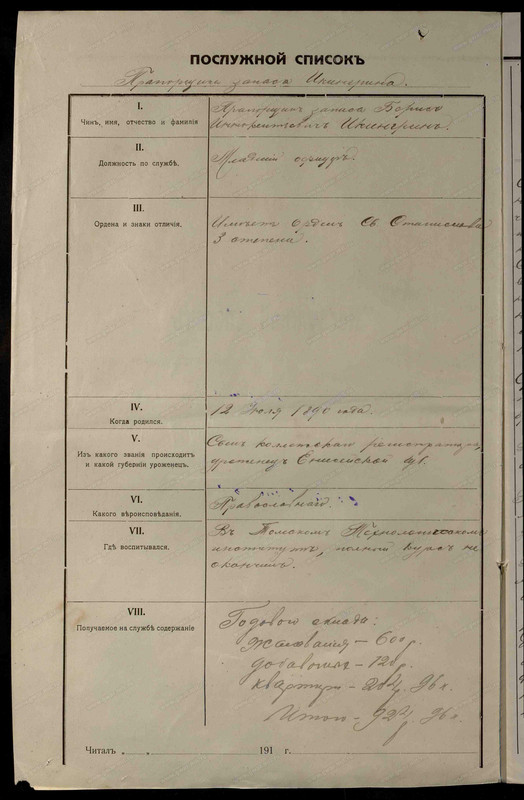 ПОСЛУЖНОЙ СПИСОКЪ
Прапорщика запаса Икингрина.
I.
Чинъ, имя, отчество и фамилія
Прапорщикъ запаса Борисъ
Иннокентьевичъ Икингринъ.
II.
Должность по службѣ.
Младшій офицеръ.
III.
Ордена и знаки отличія.
Имѣетъ орденъ Св Станислава
3 степени.
IV.
Когда родился.
12 Іюля 1890 года.
V.
Изъ какого званія происходитъ
и какой губерніи уроженецъ.
Сынъ коллежскаго регистратора,
уроженецъ Енисейской губ.
VI.
Какого вѣроисповѣданія.
Православнаго.
VII.
Гдѣ воспитывался.
Въ Томскомъ Технологическомъ
институтѣ, полный курсъ не
окончилъ.
VIII.
Получаемое на службѣ содержаніе
Годового оклада:
Жалованія — 600 р.
добавочныхъ — 120 р.
квартирн — 202 р. 96 к.
Итого — 922 р 96 к.
Читалъ 191 г.